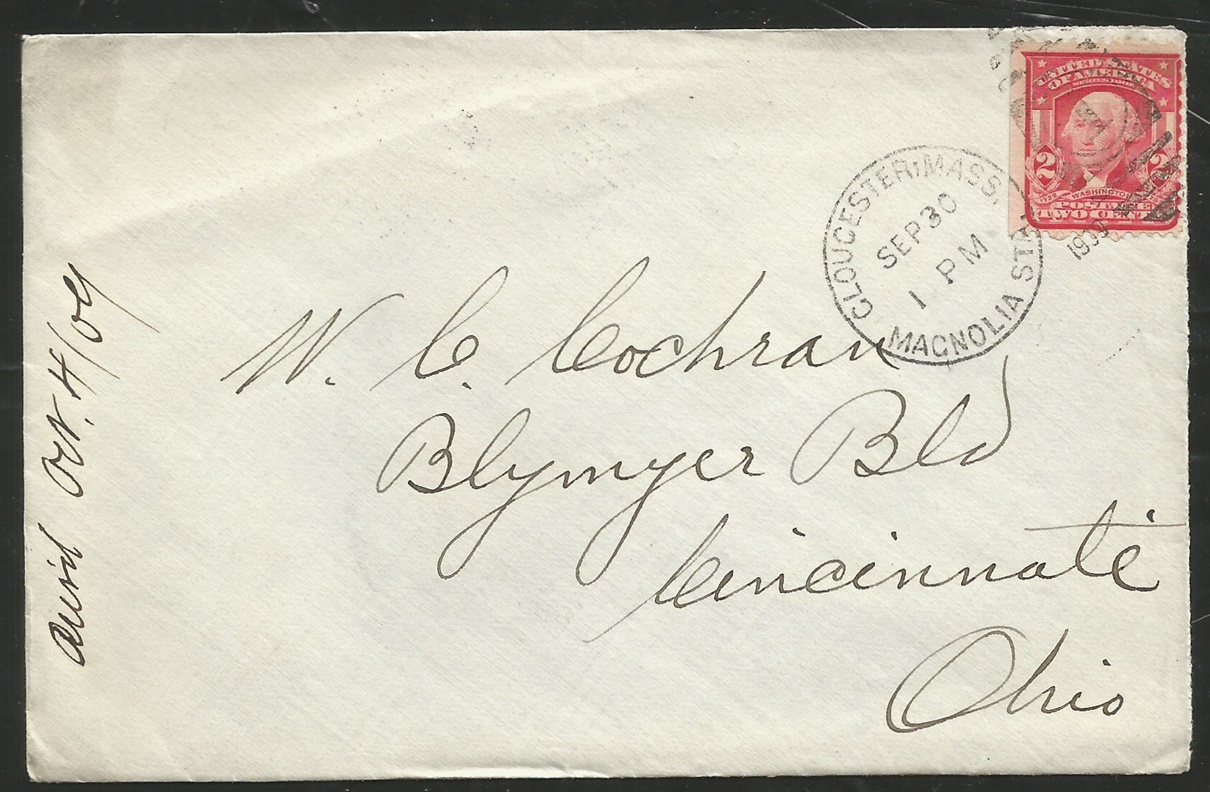 UNITED STATES
OF AMERICA
2 2
WASHINGTON
POSTAGE
TWO CENTS
GLOUCESTER, MASS.
SEP 30
1 PM
MAGNOLIA STA.
W. C. Cochran
Blymyer Bld
Cincinnati
Ohio
Oct. 4/04